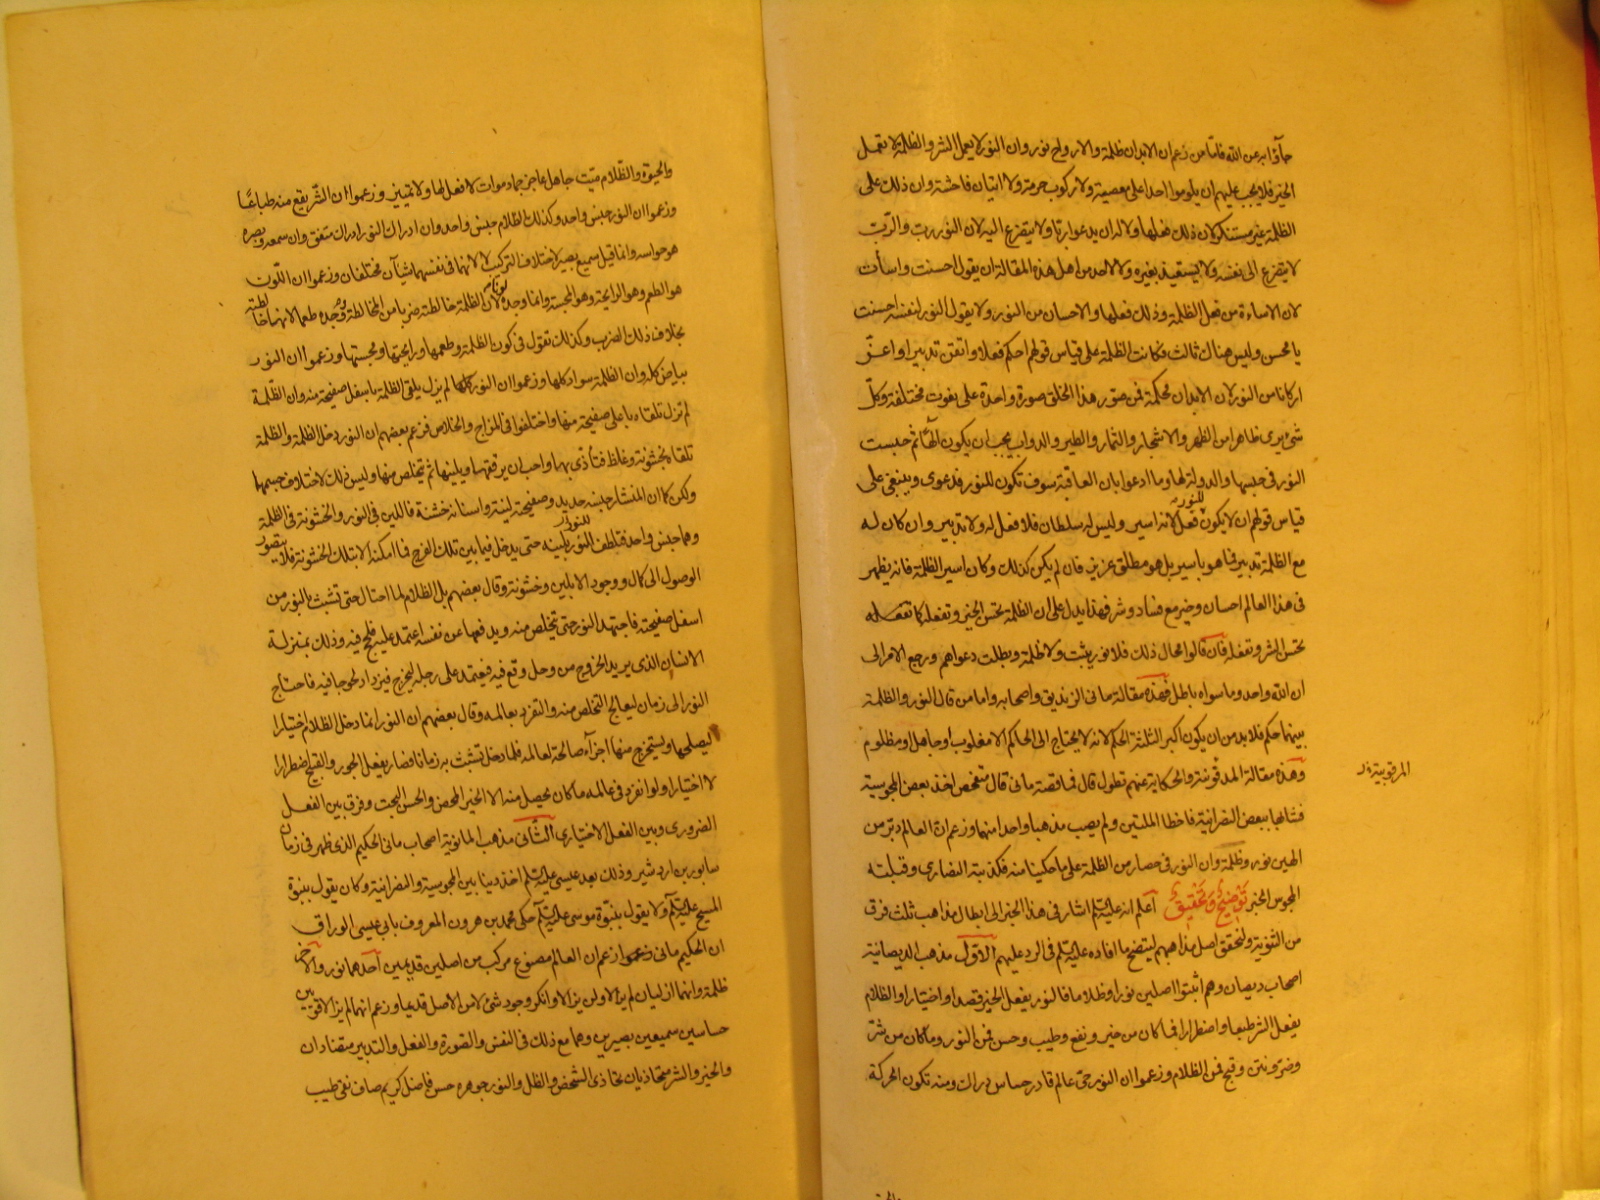 جآؤا به عن الله فاما من زعم ان الابدان ظلمة والارواح نور وان النور لا يعمل الشر والظلمة لا تعمل
الخير فلا يجب عليهم ان يلوموا احدا على معصية ولا ركوب حرمة ولا اتيان فاحشة وان ذلك على
الظلمة غير مستنكر لان ذلك فعلها ولا له ان يدعو ربا ولا يتضرع اليه لان النور رب والرب
لا يتضرع الى نفسه ولا يستعيذ بغيره ولا لاحد من اهل هذه المقالة ان يقول احسنت واسأت
لان الاساءة من فعل الظلمة وذلك فعلها والاحسان من النور ولا يقول النور لنفسه احسنت
يا محسن وليس هناك ثالث فكانت الظلمة على قياس قولهم احكم فعلا واتقن تدبيرا واعز
اركانا من النور لان الابدان محكمة فمن صور هذا الخلق صورة واحدة على نعوت مختلفة وكل
شئ يرى ظاهرا من الظهر والاشجار والثمار والطير والدواب يجب ان يكون الها ثم حبست
النور في حبسها والدولة لها وما ادعوا بان العاقبة سوف تكون للنور فدعوى وينبغي على
قياس قولهم ان لا يكون للنور فعل لانه اسير وليس له سلطان فلا فعل له ولا تدبير وان كان له
مع الظلمة تدبير فما هو باسير بل هو مطلق عزيز فان لم يكن كذلك وكان اسير الظلمة فانه يظهر
في هذا العالم احسان وخير مع فساد وشر فهذا يدل على ان الظلمة تحسن الخير وتفعله كما تفعله
تحسن الشر وتفعله فان قالوا محال ذلك فلا نور يثبت ولا ظلمة وبطلت دعواهم ورجع الامر الى
ان الله واحد وما سواه باطل فهذه مقالة ماني الزنديق واصحابه واما من قال النور والظلمة
بينهما حكم فلا بد من ان يكون اكبر الثلثة الحكم لانه لا يحتاج الى الحاكم الا مغلوب او جاهل او مظلوم
وهذه مقالة المدقونية والحكاية عنهم تطول قال فما قصة ماني قال متفحص اخذ بعض المجوسية
المرقوبية ظ
فشابها ببعض النصرانية فاخطا الملتين ولم يصب مذهبا واحدا منهما وزعم ان العالم دبر من
الهين نور وظلمة وان النور في حصار من الظلمة على ما حكينا منه فكذبته النصارى وقبلته
المجوس الخبر توضيح وتحقيق اعلم انه عليه السلم اشار في هذا الخبر الى ابطال مذاهب ثلث فرق
من الثنوية ولنحقق اصل مذاهبهم ليتضح ما افاده عليه السلم في الرد عليهم الاول مذهب الديصانية
اصحاب ديصان وهم اثبتوا اصلين نورا وظلاما فالنور يفعل الخير قصدا واختيارا والظلام
يفعل الشر طبعا واضطرارا فما كان من خير ونفع وطيب وحسن فمن النور وما كان من شر
وضر ونتن وقبح فمن الظلام وزعموا ان النور حي عالم قادر حساس دراك ومنه تكون الحركة
والحيوة والظلام ميت جاهل عاجز جماد موات لا فعل لها ولا تمييز وزعموا ان الشر يقع منه طباعا
وزعموا ان النور جنس واحد وكذلك الظلام جنس واحد وان ادراك النور ادراك متفق وان سمعه وبصره
هو حواسه وانما قيل سميع بصير لاختلاف التركيب لا لانهما في نفسهما شيآن مختلفان وزعموا ان اللون
هو الطعم وهو الرايحة وهو المجسة وانما وجده لونا لان الظلمة خالطته ضربا من المخالطة ووجده طعما لانها خالطته
بخلاف ذلك الضرب وكذلك تقول في كون الظلمة وطعمها ورايحتها ومجستها وزعموا ان النور
بياض كله وان الظلمة سواد كلها وزعموا ان النور كلها لم يزل يلقى الظلمة باسفل صفيحة منه وان الظلمة
لم تزل تلقاه باعلى صفيحة منها واختلفوا في المزاج والخلاص فزعم بعضهم ان النور دخل الظلمة والظلمة
تلقاه بخشونة وغلظ فتأذى بها واحب ان يرققها ويلينها ثم يتخلص منها وليس ذلك لاختلاف جسمها
ولكن كما ان المنشار جنسه حديد وصفيحته لينة واسنانه خشنة فاللين في النور والخشونة في الظلمة
وهما جنس واحد فتلطف النور بلينه حتى يدخل فيما بين تلك الفرج فما امكنه الا بتلك الخشونة فلا يتصور
الوصول الى كمال ووجود الا بلين وخشونة وقال بعضهم بل الظلام لما احتال حتى تشبث بالنور من
اسفل صفيحته فاجتهد النور حتى يتخلص منه ويدفعها عن نفسه اعتمد عليه فلجج فيه وذلك بمنزلة
الانسان الذي يريد الخروج من وحل وقع فيه فيعتمد على رجله ليخرج فيزداد لحوجا فيه فاحتاج
النور الى زمان ليعالج التخلص منه والتفرد بعالمه وقال بعضهم ان النور انما دخل الظلام اختيارا
ليصلحها ويستخرج منها اجزآء صالحة لعالمه فلما دخل تشبث به زمانا فصار يفعل الجور والقبيح اضطرارا
لا اختيارا ولو انفرد في عالمه ما كان يحصل منه الا الخير المحض والحسن البحت وفرق بين الفعل
الضروري وبين الفعل الاختياري الثاني مذهب المانوية اصحاب ماني الحكيم الذي ظهر في زمان
سابور بن اردشير وذلك بعد عيسى عليه السلم اخذ دينا بين المجوسية والنصرانية وكان يقول بنبوة
المسيح عليه السلم ولا يقول بنبوة موسى عليه السلم حكى محمد بن هرون المعروف بابي عيسى الوراق
ان الحكيم ماني زعم ان العالم مصنوع مركب من اصلين قديمين احدهما نور والاخر
ظلمة وانهما ازليان لم يزالا ولن يزالا وانكر وجود شئ لا من الاصل قديما وزعم انهما لم يزالا قويين
حساسين سميعين بصيرين وهما مع ذلك في النفس والصورة والفعل والتدبير متضادان
والخير والشر متحاذيان تحاذى الشخص والظل والنور جوهره حسن فاضل كريم صاف نقي طيب